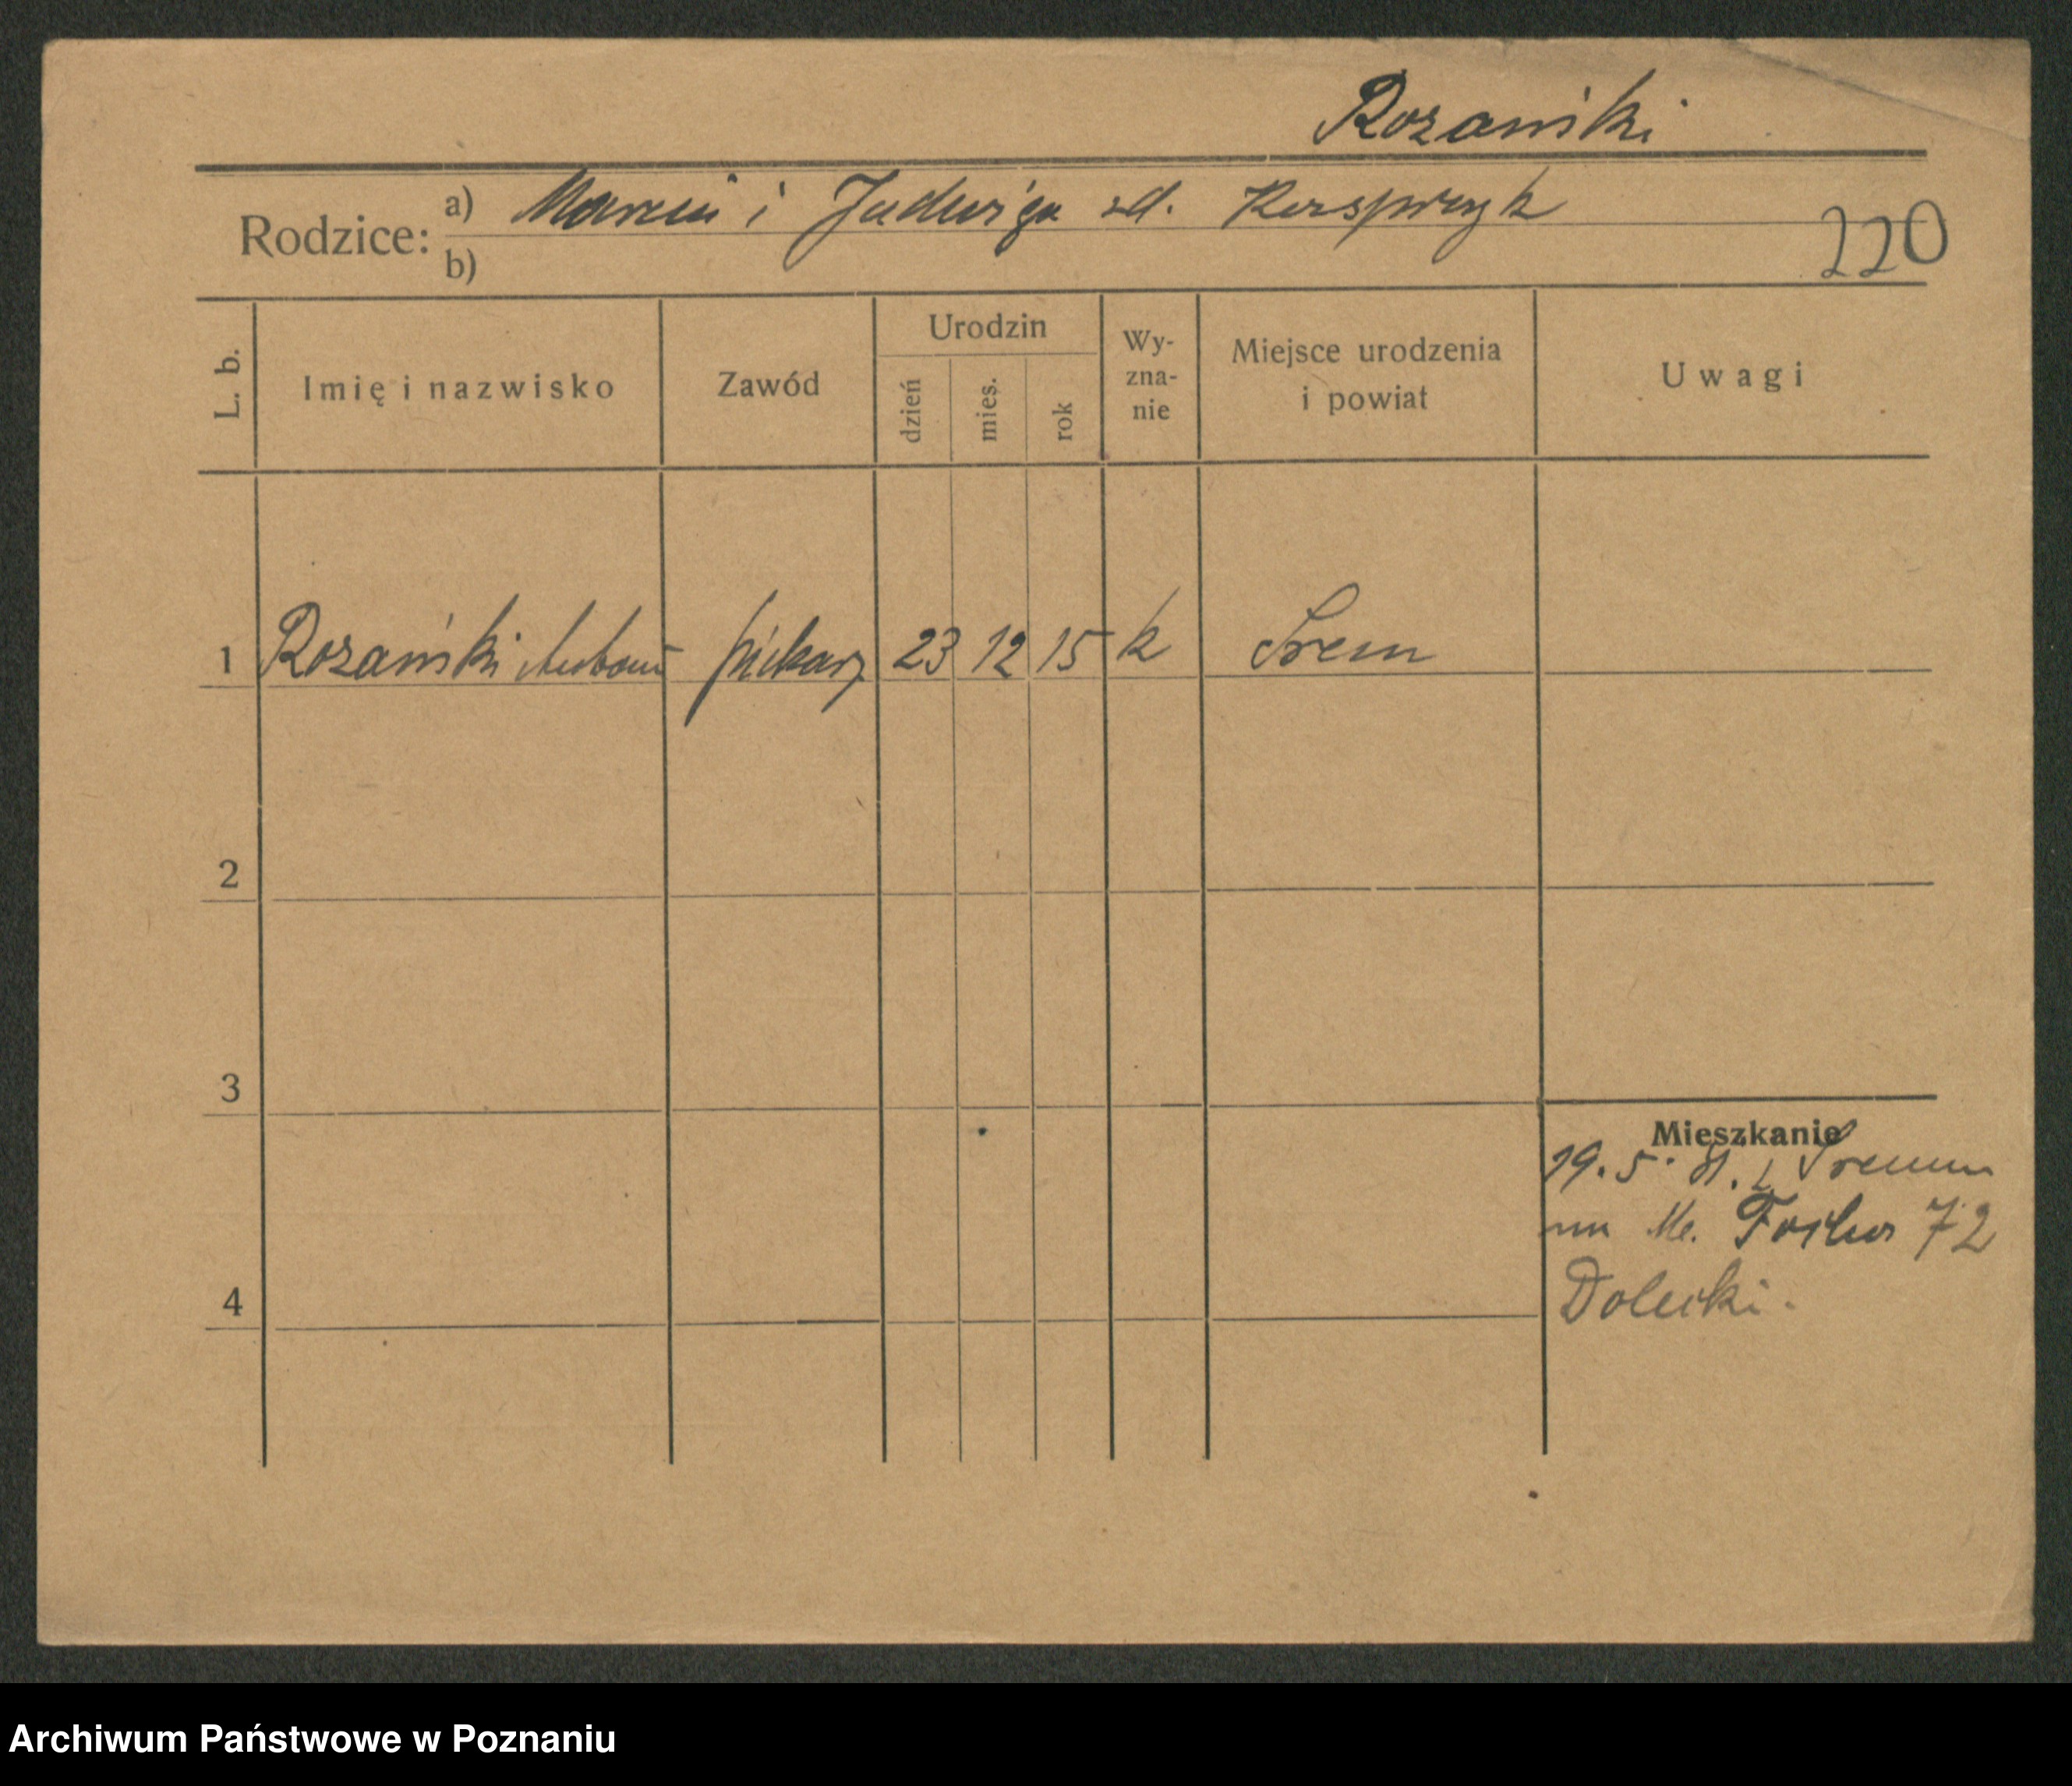 Rozański
Rodzice: a) Marcin i Jadwiga zd. Kasprzyk
b)
220
L. b. Imię i nazwisko Zawód Urodzin dzień mies. rok Wy-zna-nie Miejsce urodzenia i powiat Uwagi
1 Rozański Antoni piekarz 23 12 15 k Śrem
2
3
4
Mieszkanie
29. 5. z Śremu
na Focha 72
Dolecki.
Archiwum Państwowe w Poznaniu